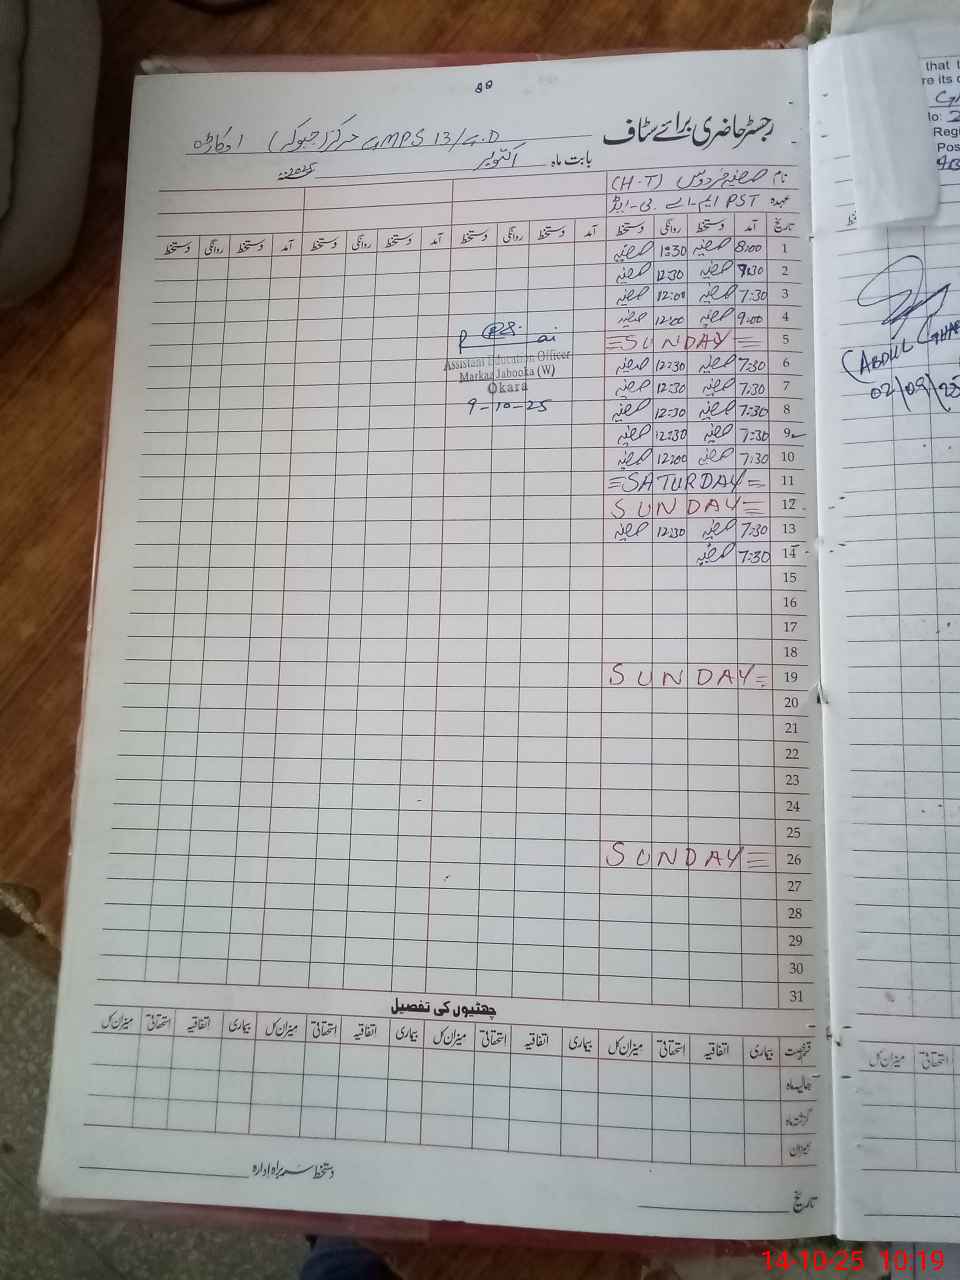 رجسٹر حاضری برائے سٹاف
GMPS 13/4.D مرکز (جبوکہ) اوکاڑہ
بابت ماہ اکتوبر 2025ء
نام صفیہ فردوس (H.T)
عہدہ PST ایم-اے بی-ایڈ
تاریخ آمد دستخط روانگی دستخط آمد دستخط روانگی دستخط آمد دستخط روانگی دستخط آمد دستخط روانگی دستخط
1 8:00 صفیہ 1:30 صفیہ
2 7:30 صفیہ 12:30 صفیہ
3 7:30 صفیہ 12:00 صفیہ
4 9:00 صفیہ 12:00 صفیہ
5 SUNDAY
6 7:30 صفیہ 12:30 صفیہ
7 7:30 صفیہ 12:30 صفیہ
8 7:30 صفیہ 12:30 صفیہ
9 7:30 صفیہ 12:30 صفیہ
10 7:30 صفیہ 12:00 صفیہ
11 SATURDAY
12 SUNDAY
13 7:30 صفیہ 12:30 صفیہ
14 7:30 صفیہ
15
16
17
18
19 SUNDAY
20
21
22
23
24
25
26 SUNDAY
27
28
29
30
31
Assistant Education Officer
Markaz Jabooka (W)
Okara
9-10-25
چھٹیوں کی تفصیل
قسم رخصت بیماری اتفاقیہ استحقاقی میزان کل بیماری اتفاقیہ استحقاقی میزان کل بیماری اتفاقیہ استحقاقی میزان کل بیماری اتفاقیہ استحقاقی میزان کل
حالیہ ماہ
گزشتہ ماہ
میزان
دستخط سربراہ ادارہ
تاریخ
that
re its
Regi
Pos
(ABDUL GHA
02/09/25
استحقاقی میزان کل
14-10-25 10:19